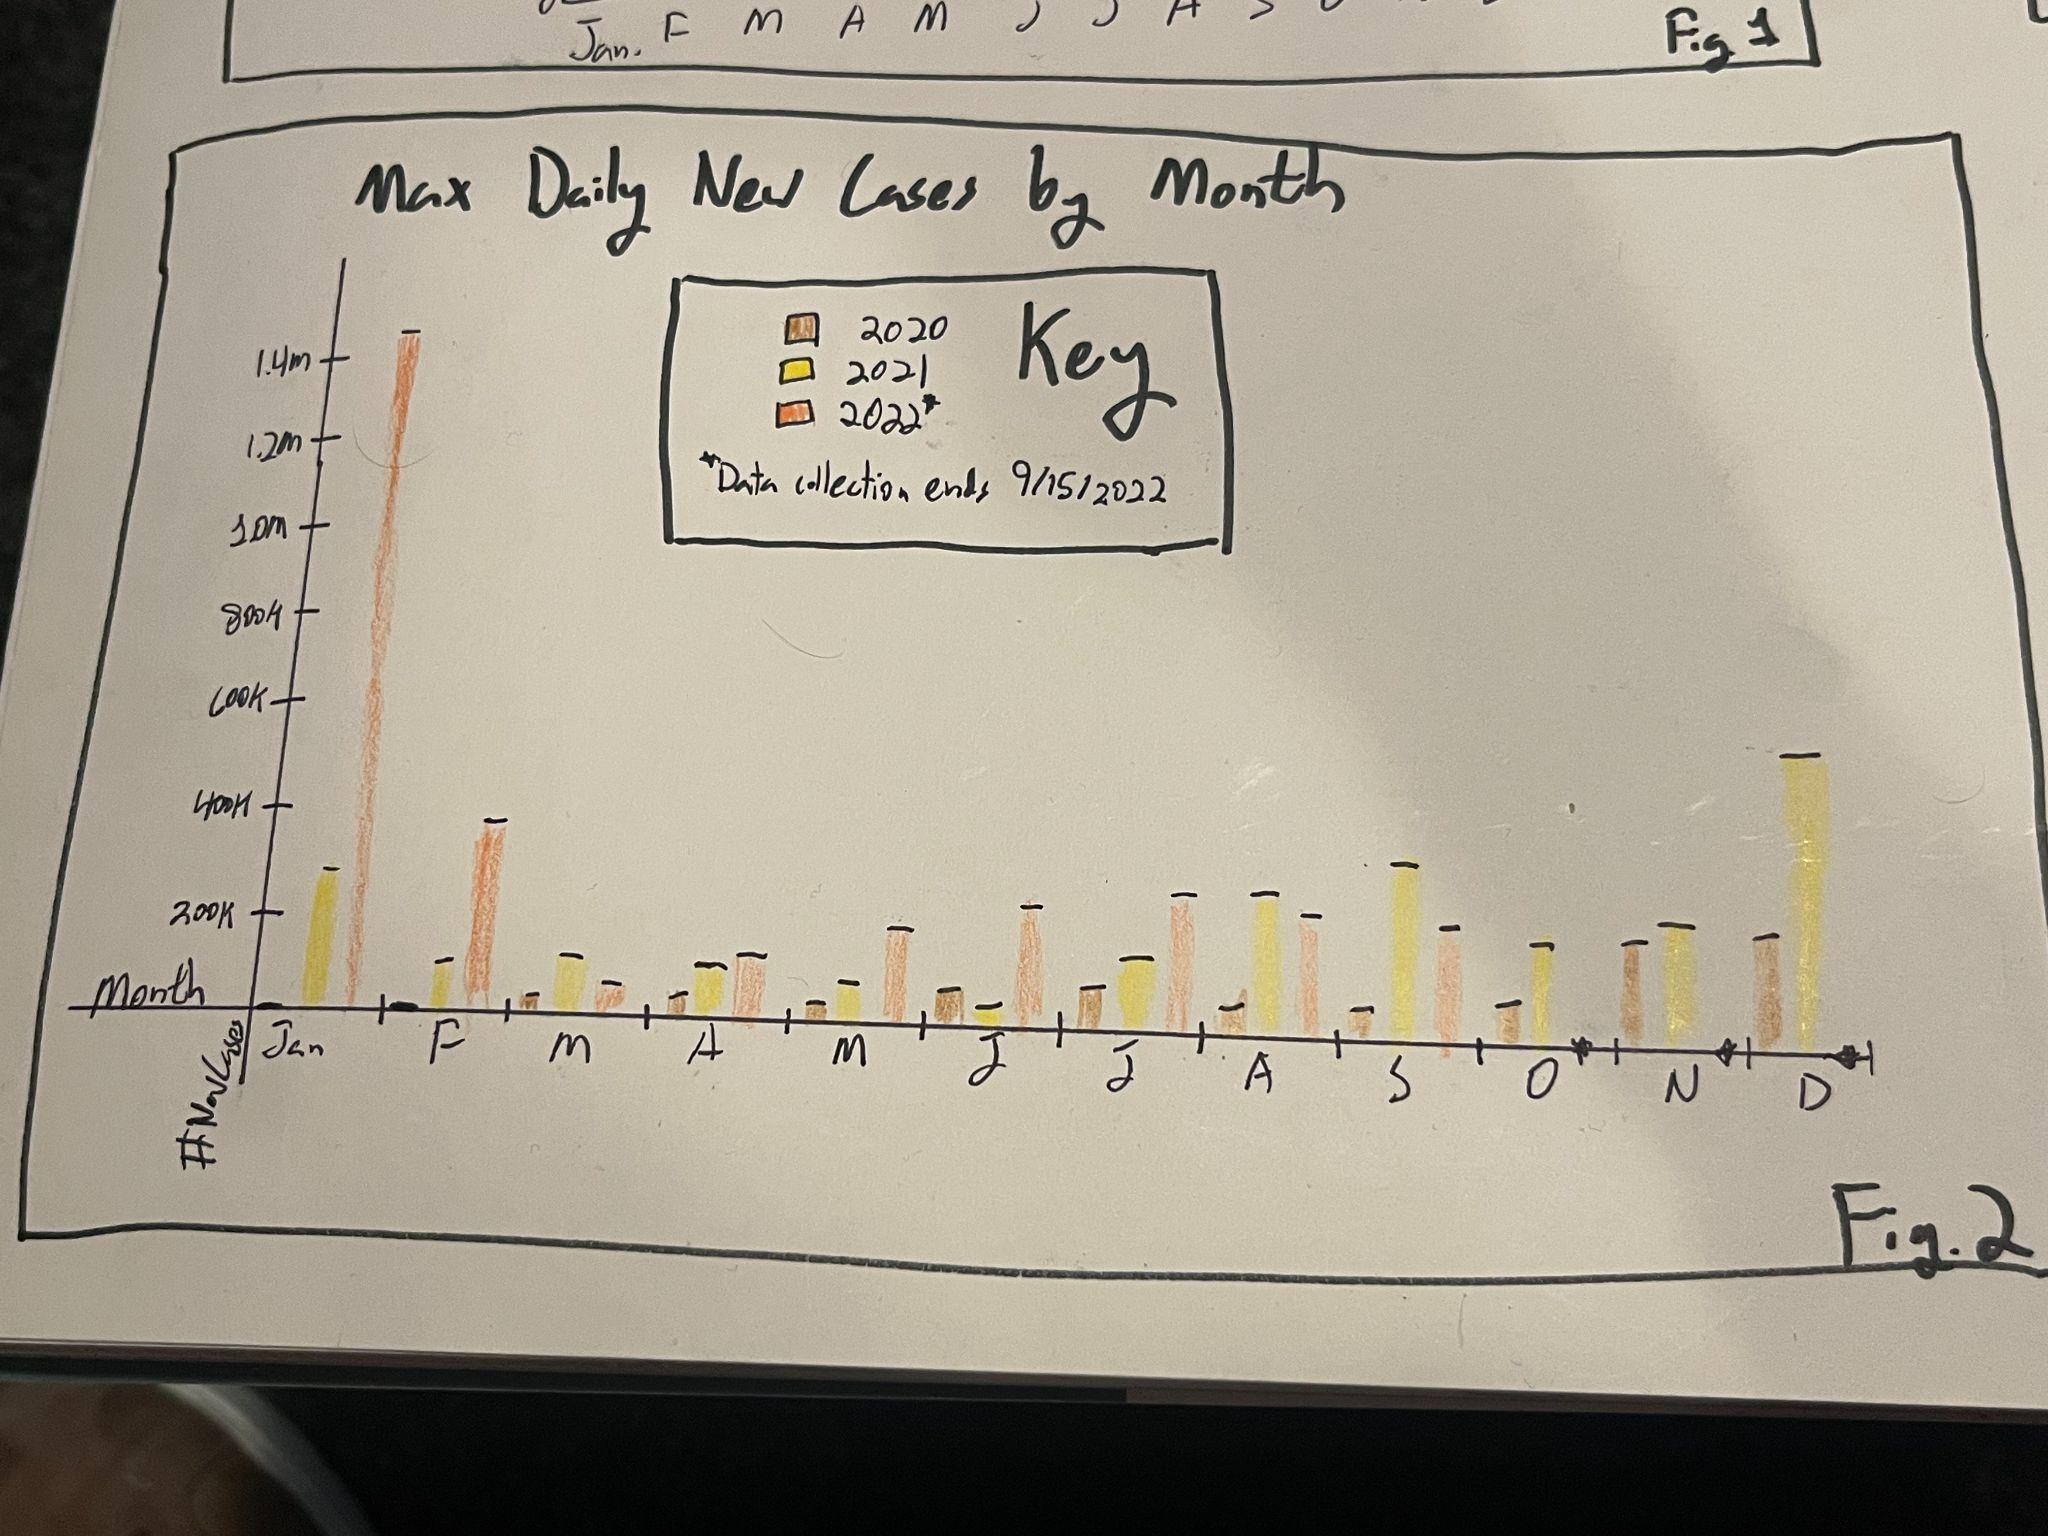 Jan. F M A M J J A S
Fig 1
Max Daily New Cases by Month
Key
2020
2021
2022*
*Data collection ends 9/15/2022
1.4m
1.2m
1.0m
800K
600K
400K
200K
Month
# New Cases
Jan F M A M J J A S O * N * D *
Fig. 2